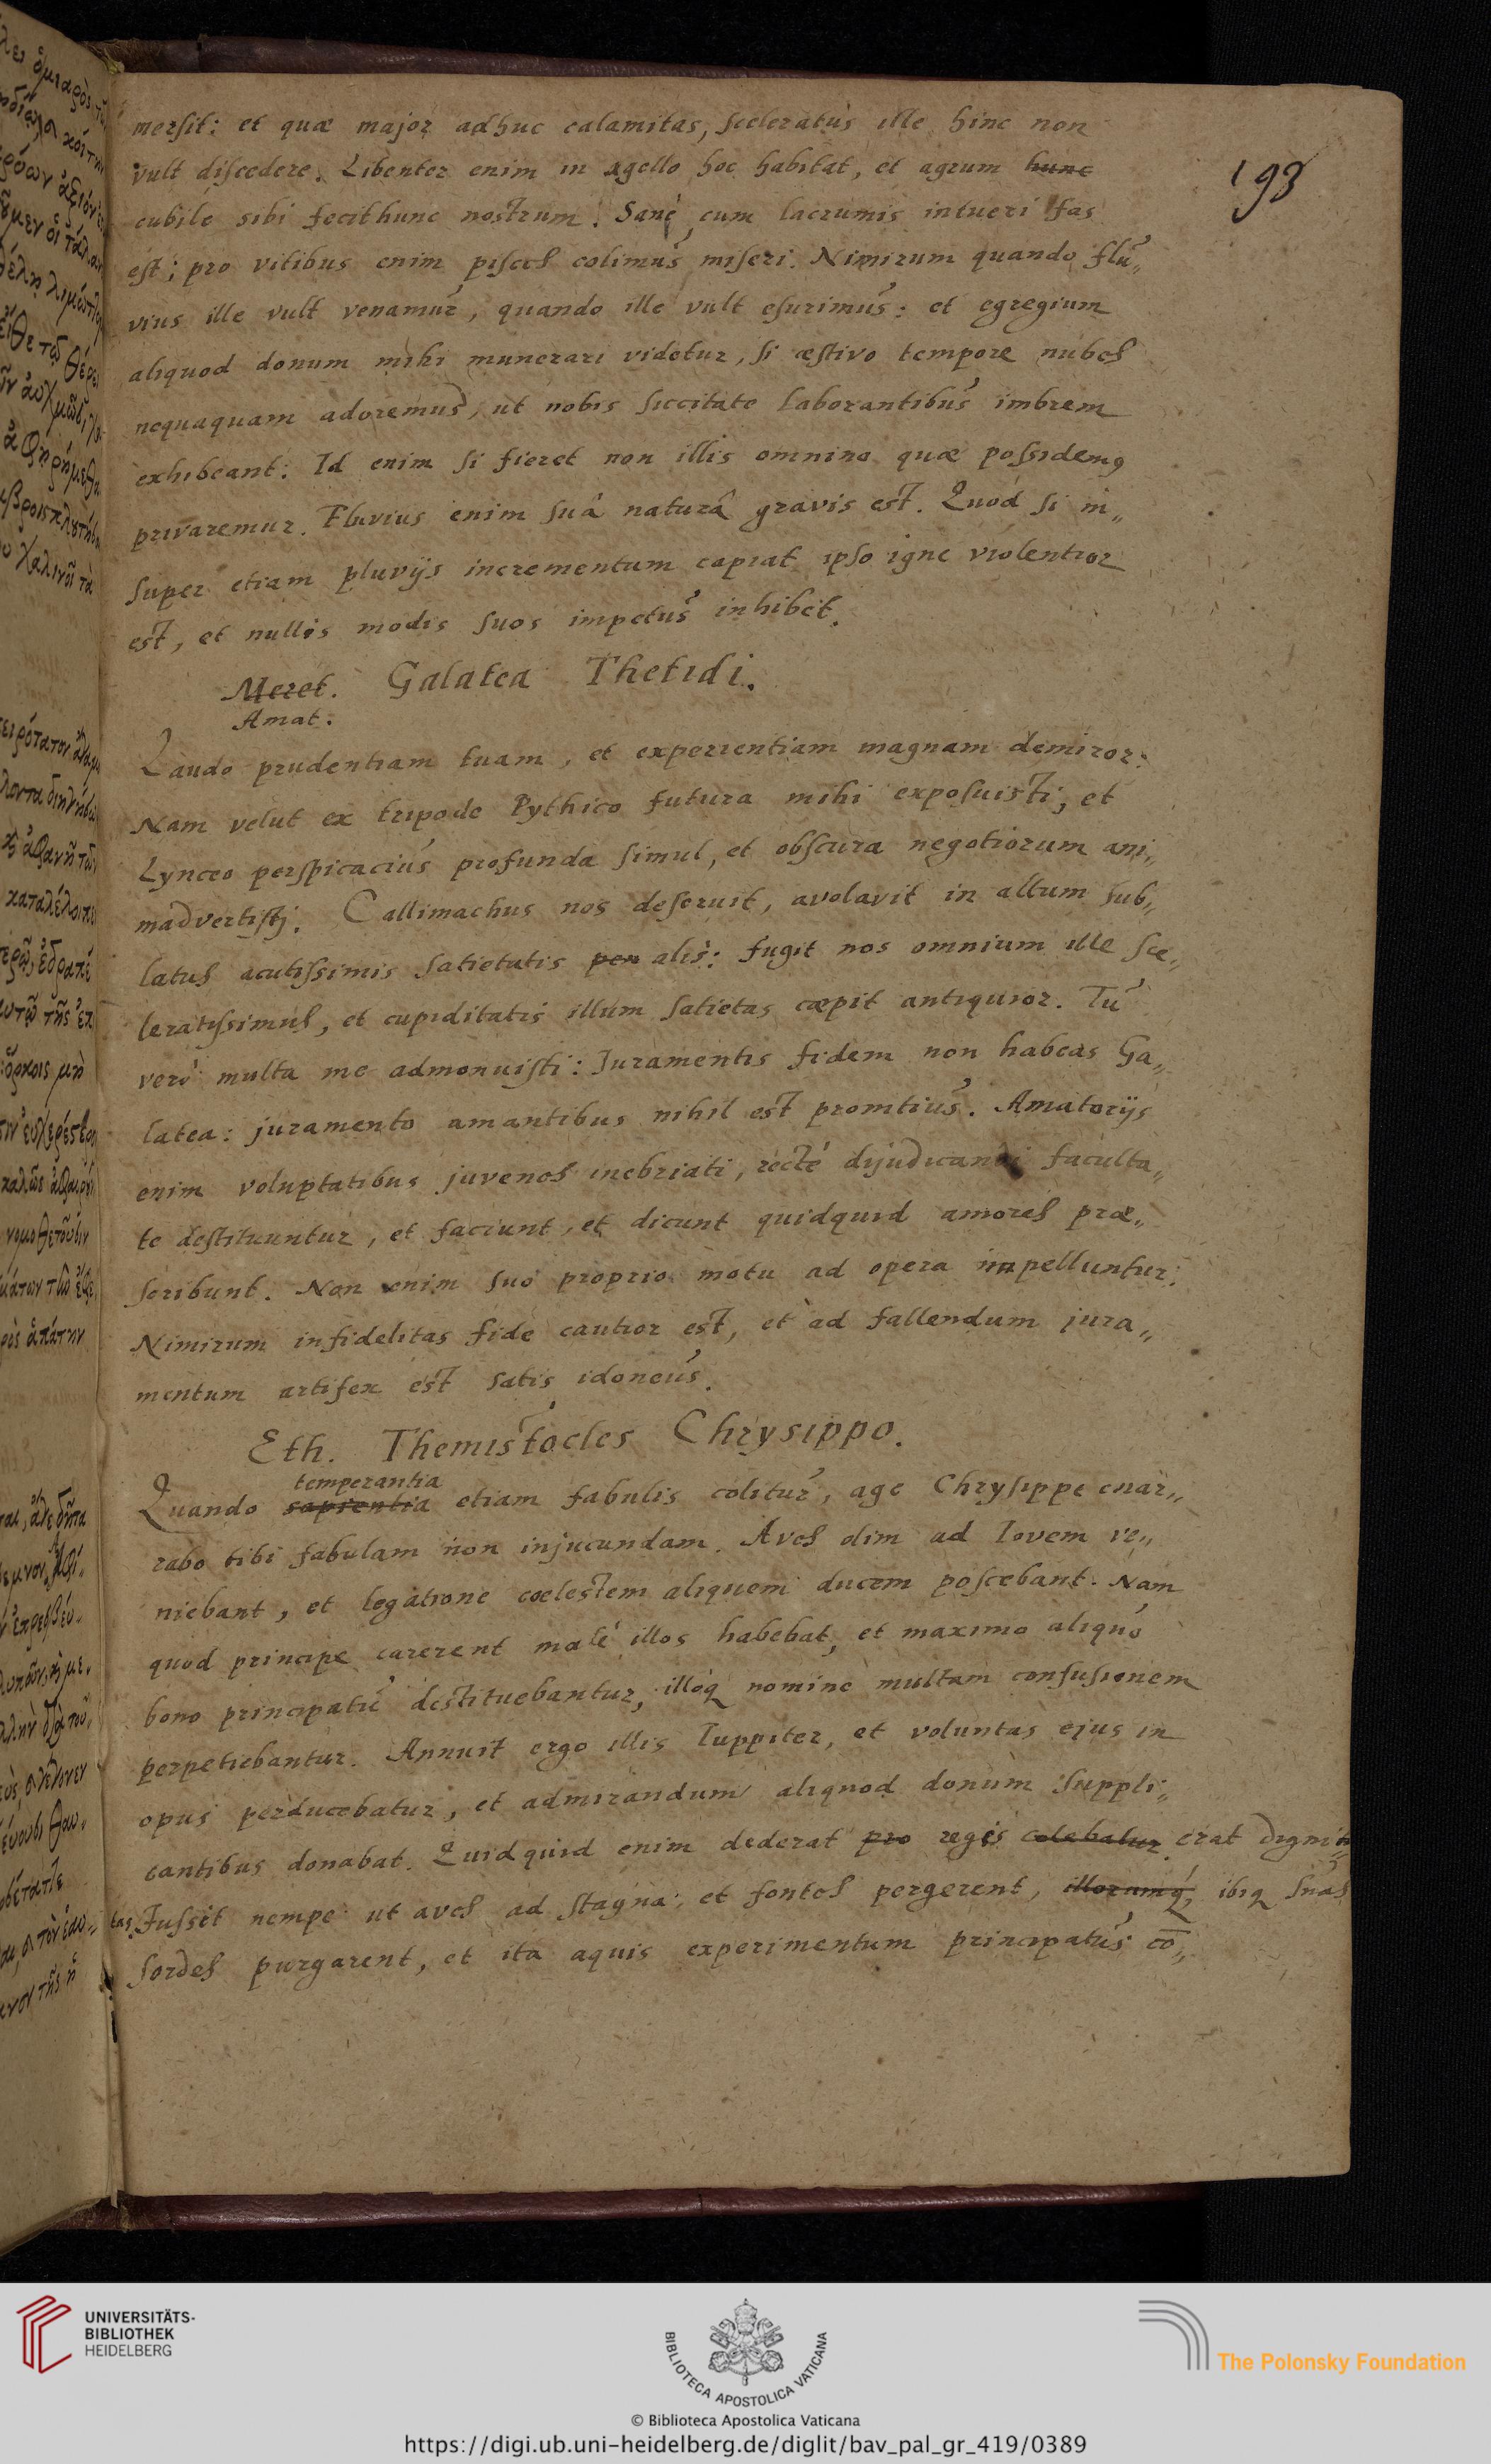 193
mersit: et quæ major adhuc calamitas, sceleratùs ille hinc non
vult discedere. Libenter enim in agello hoc habitat, et agrum hunc
cubile sibi fecit hunc nostrum. Sanè cum lacrumis intueri fas
est; pro vitibus enim pisces colimus miseri. Nimirum quando flu„
vius ille vult venamur, quando ille vult esurimus: et egregium
aliquod donum mihi munerari videtur, si æstivo tempore nubes
nequaquam adoremus, ut nobis siccitate laborantibus imbrem
exhibeant: Id enim si fieret non illis omnino quæ possidemꝯ
privaremur. Fluvius enim suâ naturâ gravis est. Quod si in„
super etiam pluvijs incrementum capiat ipso igne violentior
est, et nullis modis suos impetus inhibet.
Meret. Galatea Thetidi.
Amat.
Laudo prudentiam tuam, et experientiam magnam demiror:
Nam velut ex tripode Pythico futura mihi exposuisti, et
Lynceo perspicacius profunda simul, et obscura negotiorum ani„
madvertistj. Callimachus nos deseruit, avolavit in altum sub„
latus acutissimis satietatis pen alis: fugit nos omnium ille sce„
leratissimus, et cupiditatis illum satietas cæpit antiquior. Tu
verò multa me admonuisti: Juramentis fidem non habeas Ga„
latea: juramento amantibus nihil est promtius. Amatorijs
enim voluptatibus juvenes inebriati, rectè dijudicandi faculta„
te destituuntur, et faciunt, et dicunt quidquid amores præ„
scribunt. Non enim suo proprio motu ad opera impelluntur:
Nimirum infidelitas fide cautior est, et ad fallendum jura„
mentum artifex est satis idoneus.
Eth. Themistocles Chrysippo.
temperantia
Quando sapientia etiam fabulis colitur, age Chrysippe enar„
rabo tibi fabulam non injucundam. Aves olim ad Iovem ve„
niebant, et legatione coelestem aliquem ducem poscebant. Nam
quod principe carerent malè illos habebat, et maximo aliquo
bono principatu destituebantur, illoq nomine multam confusionem
perpetiebantur. Annuit ergo illis Iuppiter, et voluntas ejus in
opus perducebatur, et admirandum aliquod donum suppli„
cantibus donabat. Quidquid enim dederat pro regis colebatur. erat digni„
tas. Jussit nempe ut aves ad stagna, et fontes pergerent, illorumq, ibiq suas
sordes purgarent, et ita aquis experimentum principatus cō„
UNIVERSITÄTS-
BIBLIOTHEK
HEIDELBERG
BIBLIOTECA APOSTOLICA VATICANA
The Polonsky Foundation
© Biblioteca Apostolica Vaticana
https://digi.ub.uni-heidelberg.de/diglit/bav_pal_gr_419/0389